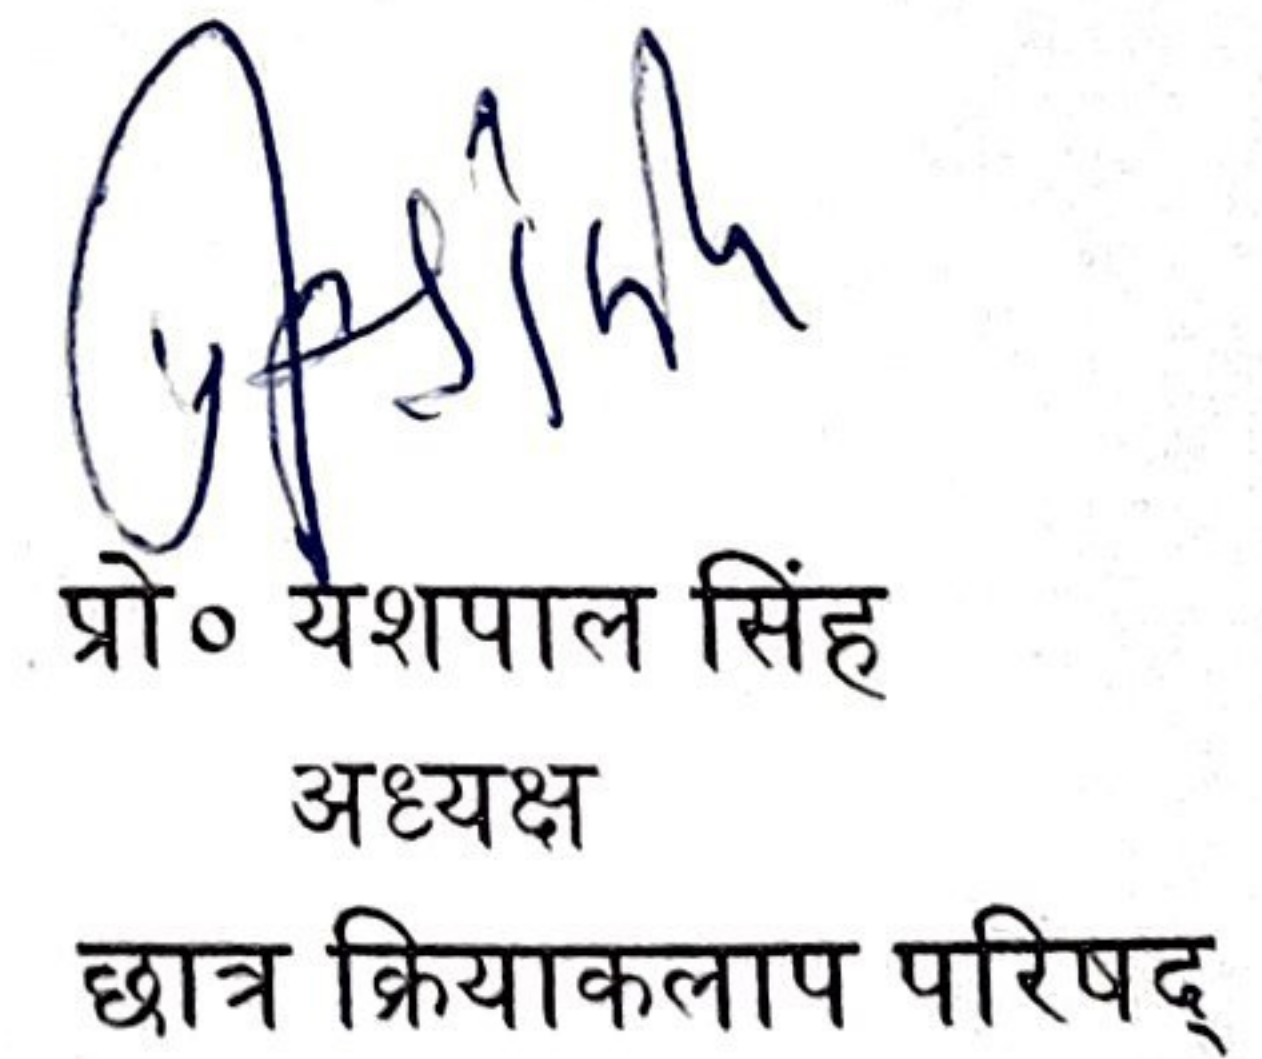 प्रो० यशपाल सिंह
अध्यक्ष
छात्र क्रियाकलाप परिषद्